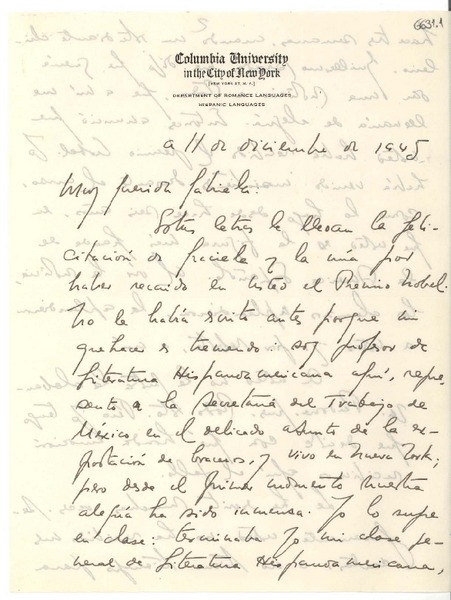 6631.1
Columbia University
in the City of New York
[NEW YORK 27, N. Y.]
DEPARTMENT OF ROMANCE LANGUAGES
HISPANIC LANGUAGES
a 11 de diciembre de 1945
Muy querida Gabriela:
Estas letras le llevan la feli-
citación de Graciela y la mía por
haber recaído en usted el Premio Nobel.
No le había escrito antes porque mi
quehacer es tremendo: soy profesor de
Literatura Hispanoamericana aquí, repre-
sento a la Secretaría del Trabajo de
México en el delicado asunto de la ex-
portación de braceros, y vivo en Nueva York;
pero desde el primer momento nuestra
alegría ha sido inmensa. Yo lo supe
en clase: terminaba yo mi clase ge-
neral de Literatura Hispanoamericana,